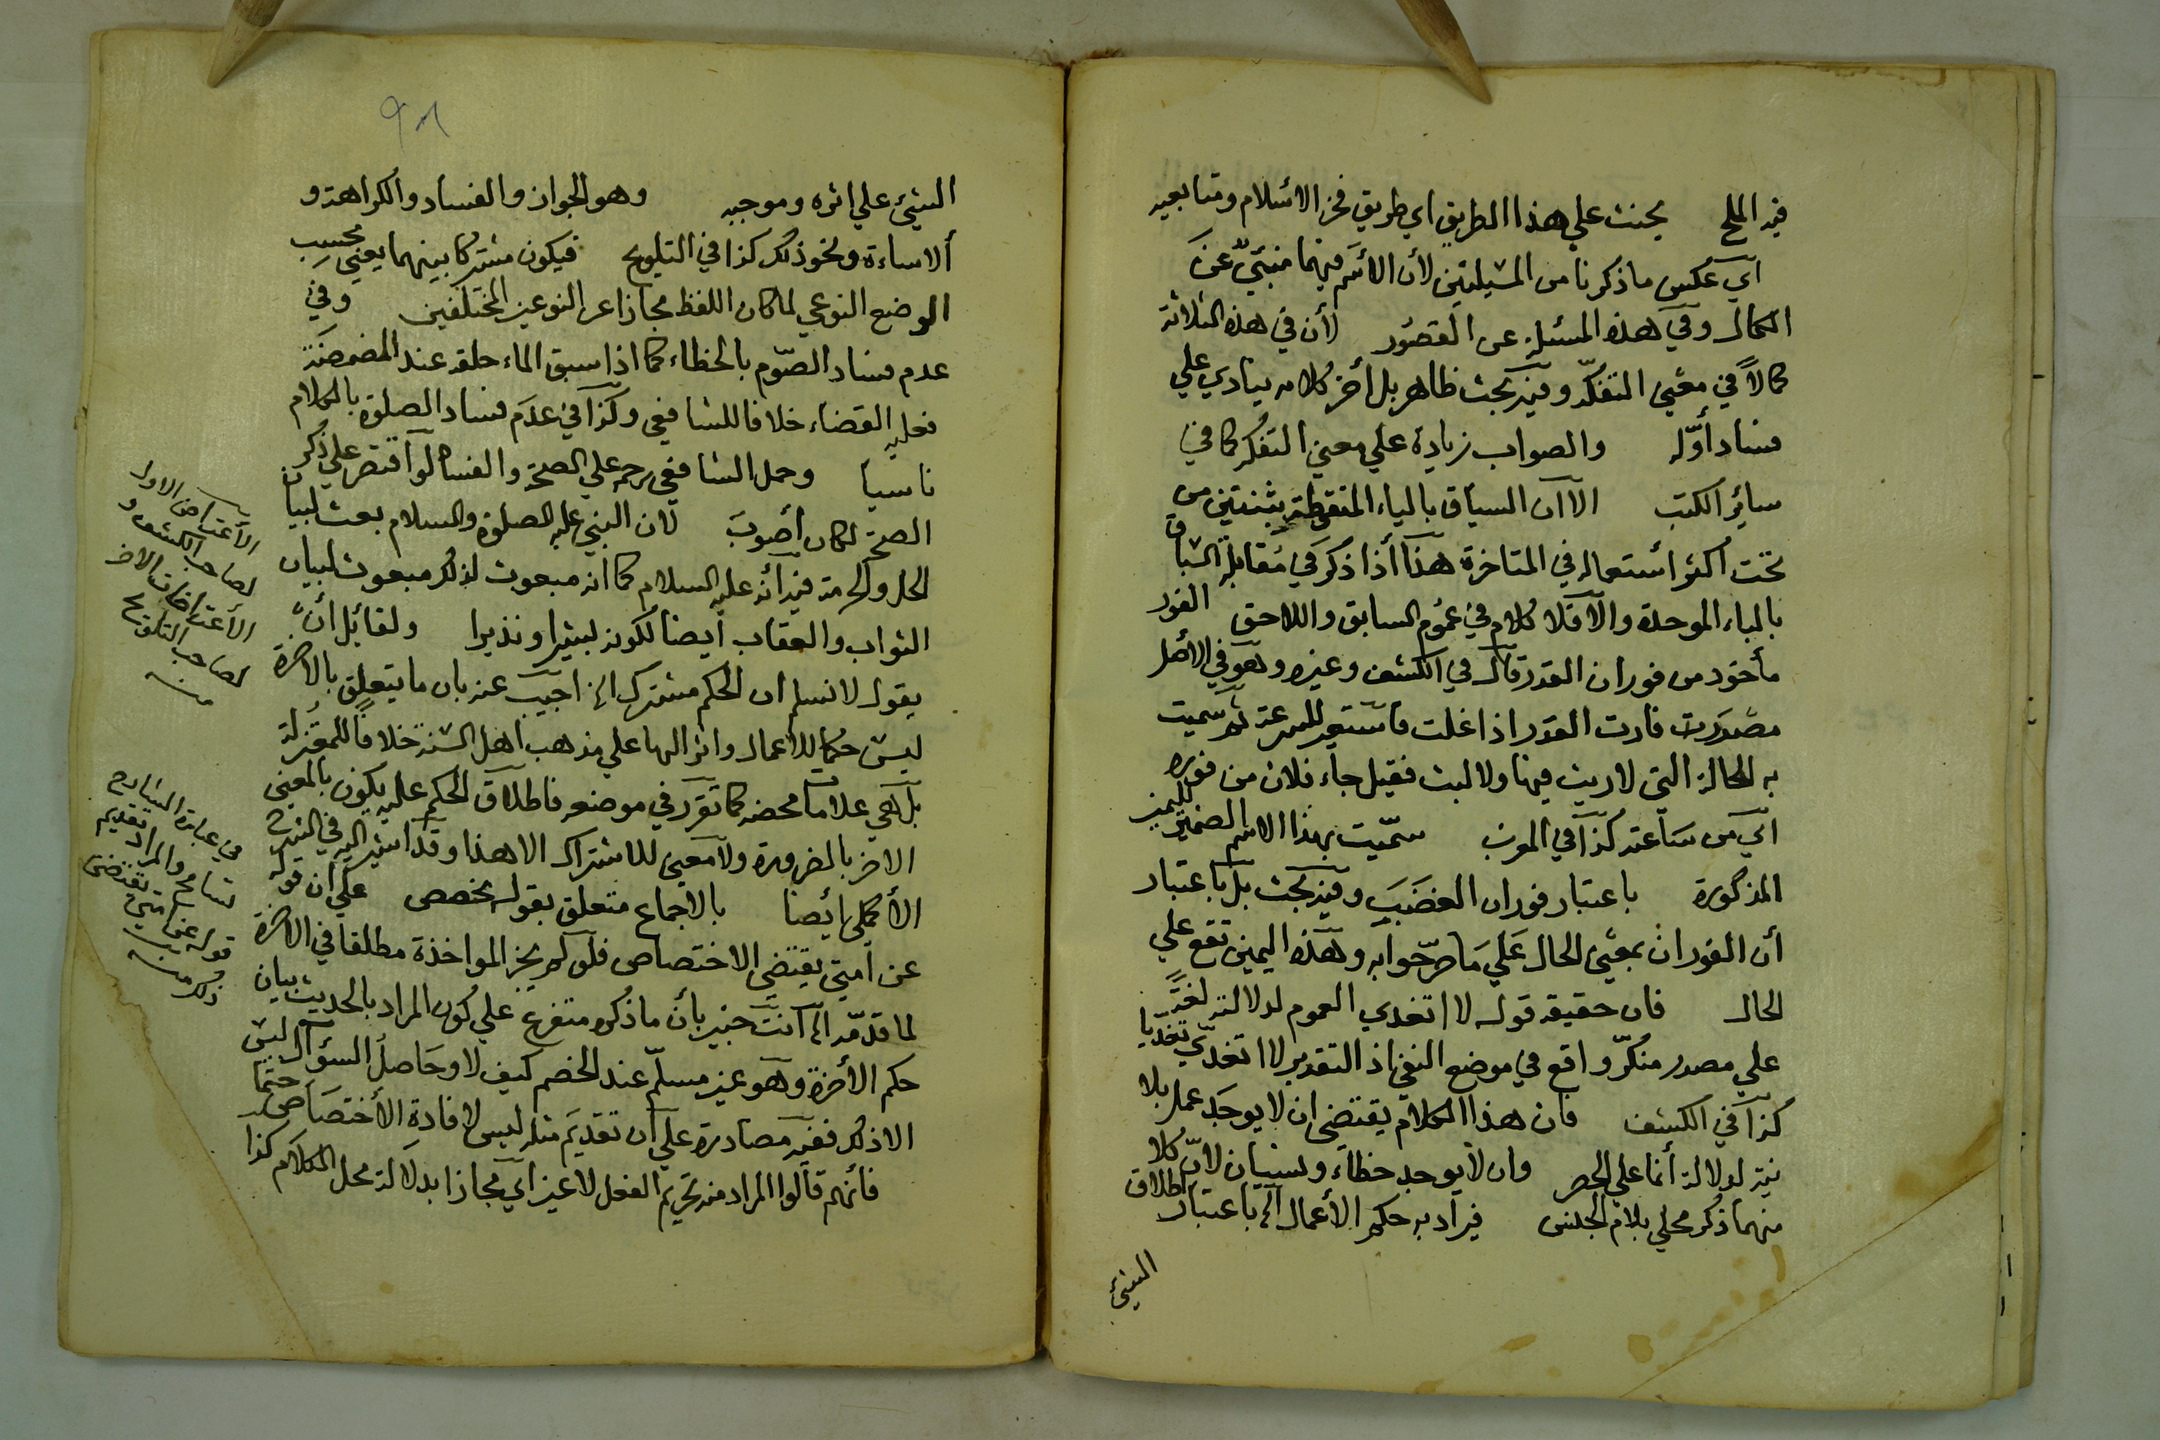 فيه الملح يحنث علي هذا الطريق اي طريق فخر الاسلام ومتابعيه
اي عكس ما ذكرنا من المسئلتين لان الاسم فيهما منبئ عن
الكمال وفي هذه المسئلة عن القصور لأن في هذه الثلاثة
كمالاً في معني التفكه وفيه بحث ظاهر بل أخر كلامه ينادي علي
فساد أوّله والصواب زيادة علي معني التفكر كما في
سائر الكتب الا ان السياق بالياء المنقطة بثنتين من
تحت أكثر أستعماله في المتاخرة هذا أذا ذكر في مقابلة السباق
بالباء الموحدة والا فلا كلام في عموم السابق واللاحق الفور
مأخوذ من فوران القدر قال في الكشف وغيره وهو في الاصل
مصدر من فارت القدر اذا غلت فاستعير للسرعة ثم سميت
به الحالة التي لا ريث فيها ولا لبث فقيل جاء فلان من فوره
اي من ساعته كذا في المغرب سمّيت بهذا الاسم الضمير لليمين
المذكورة باعتبار فوران الغضب وفيه بحث بل باعتبار
أن الفوران بمعني الحال علي ما صرّحوا به وهذه اليمين تقع علي
الحال فان حقيقة قوله لا اتغدي العموم لدلالته لغةً
علي مصدر منكّر واقع في موضع النفي اذ التقدير لا اتغدّي تغدّيا
كذا في الكشف فان هذا الكلام يقتضي ان لا يوجد عمل بلا
نية لدلالة أنما علي الحصر وان لا يوجد خطاء ونسيان لانّ كلا
منهما ذكر محلي بلام الجنس فيراد به حكم الأعمال الخ باعتبار اطلاق
الشئ
٩٨
الشئ علي اثره وموجبه وهو الجواز والفساد والكراهة و
الاساءة ونحو ذلك كذا في التلويح فيكون مشتركا بينهما يعني بحسب
الوضع النوعي لما كان اللفظ مجازا عن النوعين المختلفين وفي
عدم فساد الصّوم بالخطاء كما اذا سبق الماء حلقه عند المضمضة
فعليه القضاء خلافا للشافعي وكذا في عدم فساد الصلوة بالكلام
ناسيا وحمل الشافعي رحمه علي الصحة والفساد لو اقتصر علي ذكر
الصحة لكان أصوب لان النبي عليه الصلوة والسلام بعث لبيان
الحل والحرمة فيه أنه عليه السلام كما انه مبعوث لذلك مبعوث لبيان
الثواب والعقاب أيضا لكونه بشيرا ونذيرا ولقائل أن
يقول لا نسلم ان الحكم مشترك الخ اجيب عنه بان ما يتعلق بالاخرة
ليس حُكما للأعمال واثرا لها علي مذهب اهل السنة خلافاً للمعتزلة
بل هي علامات محضة كما تقرر في موضعه فاطلاق الحكم عليه يكون بالمعني
الاخر بالضرورة ولا معني للاشتراك الا هذا وقد اشير اليه في الشرح
الأكملي أيضا بالاجماع متعلق بقوله يختص علي ان قوله
عن أمتي يقتضي الاختصاص فلو لم يجز المواخذة مطلقا في الاخرة
لما قدّمه الخ أنت خبير بأن ما ذكره متفرع علي كون المراد بالحديث بيان
حكم الأخرة وهو غير مسلّم عند الخصم كيف لا وحاصل السؤال ليس
الا ذلك ففيه مصادرة علي أن تقديم مثله ليس لافادة الأختصاص حتما
فأنهم قالوا المراد منه تحريم الفعل لا عين اي مجازا بدلالة محل الكلام كذا
الأعتراض الاول
لصاحب الكشف و
الأعتراضات الاخر
لصاحب التلويح
منه
في عبارة الشارح
تسامح والمراد تقديم
قوله عن أمتي يقتضي
ذكر منه